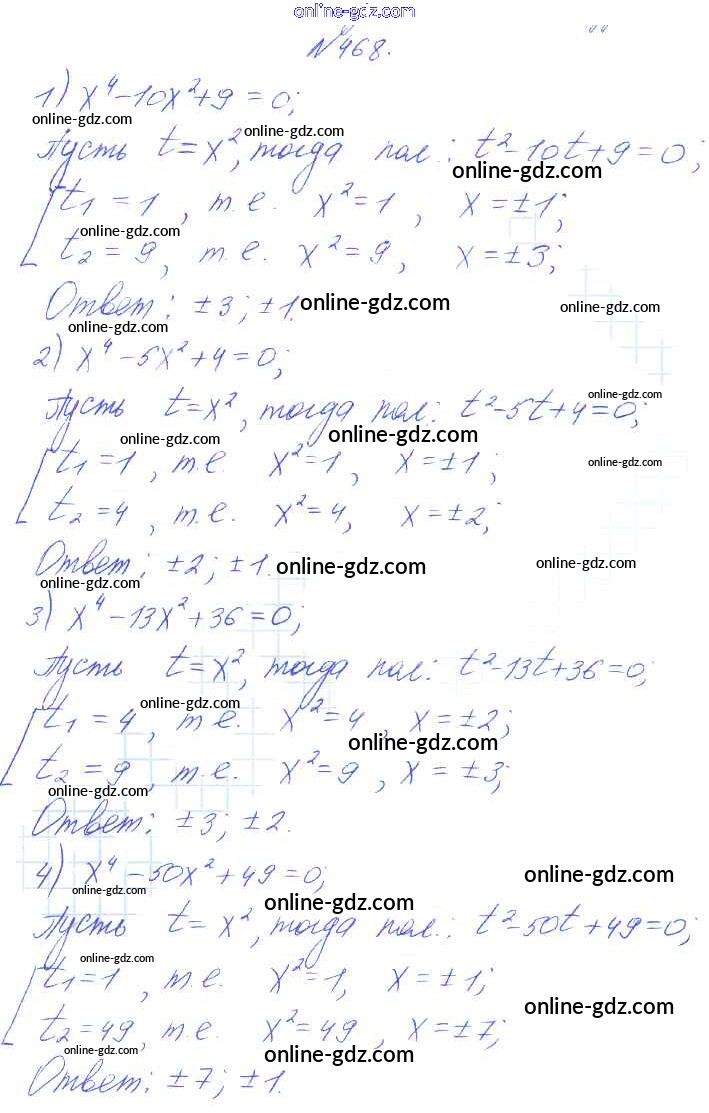 online-gdz.com
№468.
1) x⁴-10x²+9=0;
online-gdz.com online-gdz.com
Пусть t=x², тогда пол.: t²-10t+9=0;
online-gdz.com
t₁=1, т.е. x²=1, x=±1;
online-gdz.com
t₂=9, т.е. x²=9, x=±3;
Ответ: ±3; ±1. online-gdz.com
online-gdz.com
2) x⁴-5x²+4=0;
online-gdz.com
Пусть t=x², тогда пол.: t²-5t+4=0;
online-gdz.com online-gdz.com
t₁=1, т.е. x²=1, x=±1;
online-gdz.com
t₂=4, т.е. x²=4, x=±2;
Ответ: ±2; ±1. online-gdz.com online-gdz.com
online-gdz.com
3) x⁴-13x²+36=0;
Пусть t=x², тогда пол.: t²-13t+36=0;
online-gdz.com
t₁=4, т.е. x²=4, x=±2;
online-gdz.com
t₂=9, т.е. x²=9, x=±3;
online-gdz.com
Ответ: ±3; ±2.
4) x⁴-50x²+49=0;
online-gdz.com
online-gdz.com online-gdz.com
Пусть t=x², тогда пол.: t²-50t+49=0;
online-gdz.com
t₁=1, т.е. x²=1, x=±1;
online-gdz.com
t₂=49, т.е. x²=49, x=±7;
online-gdz.com online-gdz.com
Ответ: ±7; ±1.